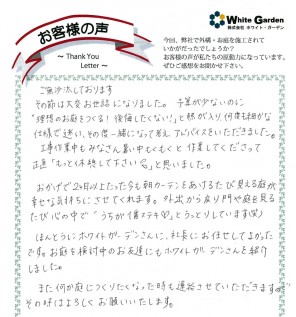 White Garden
株式会社 ホワイト・ガーデン
お客様の声
～ Thank You
Letter ～
今回、弊社で外構・お庭を施工されて
いかがだったでしょうか？
お客様の声が私たちの原動力になっています。
ぜひご感想をお聞かせ下さい。
ご無沙汰しております
その節は大変お世話になりました。予算が少ないのに
"理想のお庭をつくる！後悔したくない！"と熱が入り、何度も細かな
仕様で迷い、その度一緒になって考え アドバイスをいただきました。
工事作業中もみなさん暑い中もくもくと作業してくださって
正直「もっと休憩して下さい」と思いました。
おかげで2ヶ月以上たった今も朝カーテンをあけるたび見える庭が
幸せな気持ちにさせてくれます。外出から戻り門や庭を見る
たび心の中で"うちが1番ステキ♡"とうっとりしています(笑)
ほんとうにホワイトガーデンさんに、社長にお任せしてよかった
です。お庭を検討中のお友達にもホワイトガーデンさんを紹介
しました。
また何か庭につくりたくなった時も連絡させていただきます。
その時はよろしくお願いいたします。